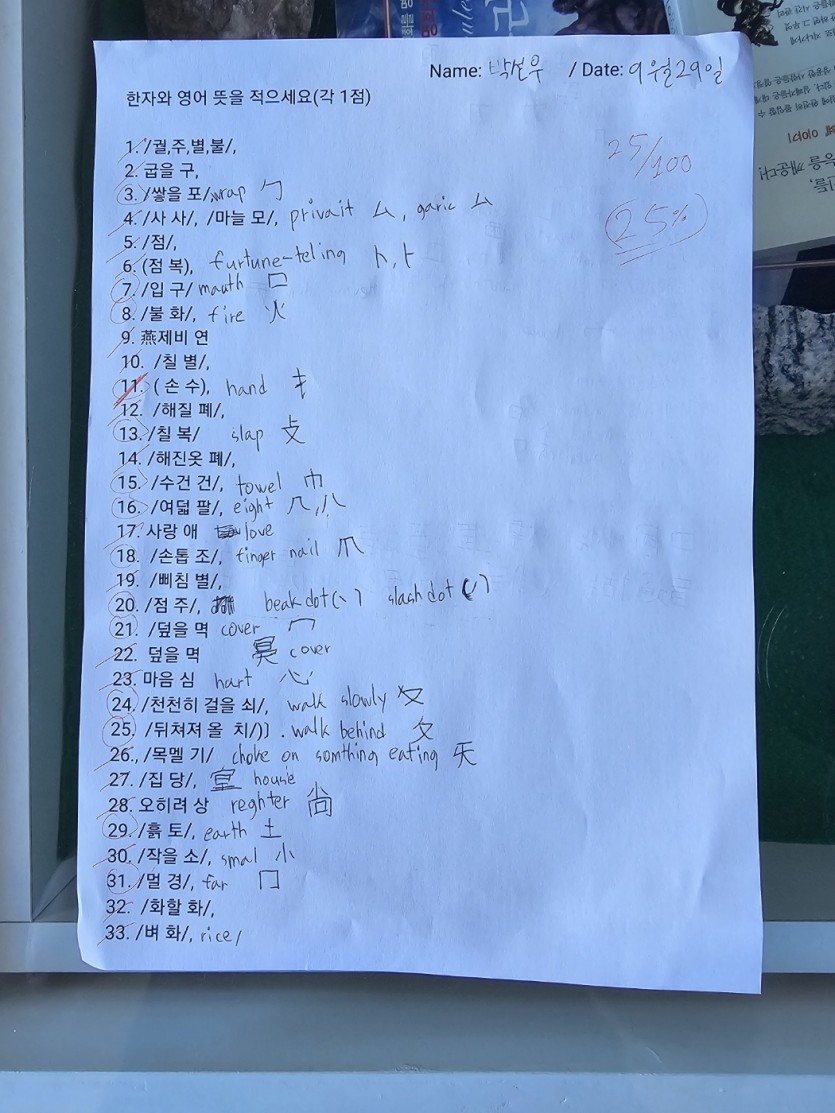 Name: 박설우 / Date: 9월29일
한자와 영어 뜻을 적으세요(각 1점)
25/100
25%
1. /궐,주,별,불/,
2. 굽을 구,
3. /쌓을 포/, wrap 勹
4. /사 사/, /마늘 모/, privait 厶, garic 厶
5. /점/,
6. (점 복), furtune-teling 卜, ⺊
7. /입 구/ mouth 口
8. /불 화/, fire 火
9. 燕제비 연
10. /칠 별/,
11. ( 손 수), hand 扌
12. /해질 폐/,
13. /칠 복/ slap 攴
14. /해진옷 폐/,
15. /수건 건/, towel 巾
16. /여덟 팔/, eight 八, 八
17. 사랑 애 love
18. /손톱 조/, finger nail 爪
19. /삐침 별/,
20. /점 주/, beak dot (丶) slash dot
21. /덮을 멱 cover 冖
22. 덮을 멱 cover
23. 마음 심 hart 心
24. /천천히 걸을 쇠/, walk slowly 夊
25. /뒤쳐져 올 치/)〕. walk behind 夂
26., /목멜 기/ choke on somthing eating 旡
27. /집 당/, house
28. 오히려 상 reghter 尙
29. /흙 토/, earth 土
30. /작을 소/, smal 小
31. /멀 경/, far 冂
32. /화할 화/,
33. /벼 화/, rice/